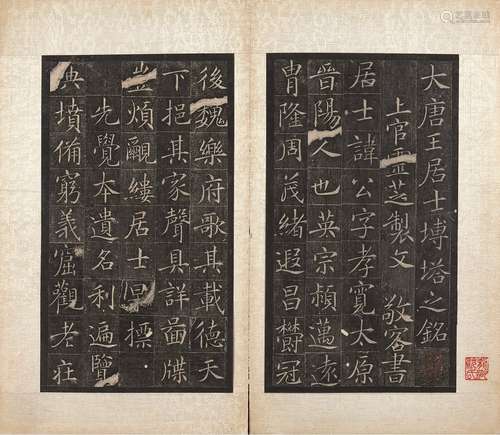 大唐王居士塼塔之銘
上官靈芝製文 敬客書
居士諱公字孝寬太原
晉陽人也英宗頴邁遠
冑隆周茂緒遐昌欝冠
後魏樂府歌其載德天
下挹其家聲具詳啚牒
豈煩覼縷居士早標
先覺本遺名利遍覽
典墳備窮義窟觀老莊